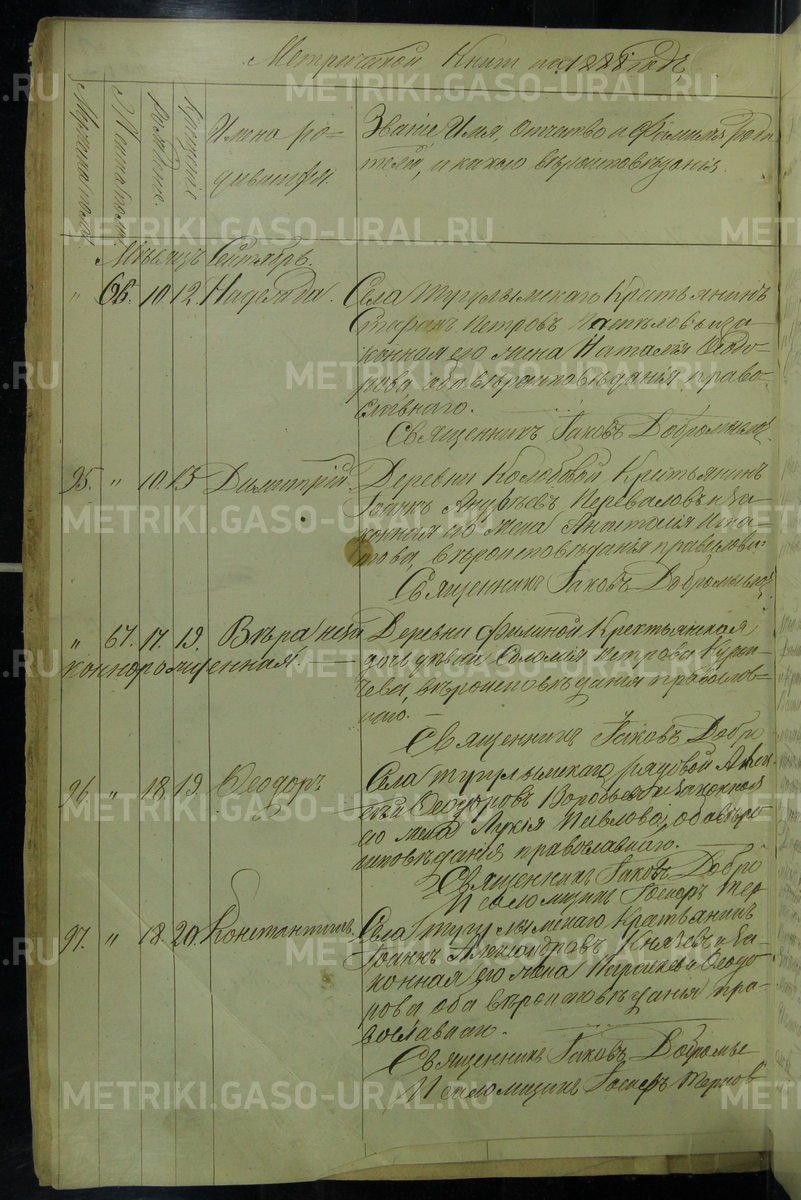 Метрической Книги на 1888 годъ
Мужеска пола.
Женска пола.
рожденіе.
Крещеніе
Имена ро-
дившихся.
Званіе, Имя, Отчество и Фамилія роди
телей, и какого вѣроисповѣданія.
Мѣсяцъ Сентябрь.
" 66. 10. 12. Надежда.
Села Тугулымскаго Крестьянинъ
Петровъ и за-
конная его жена Наталья Ѳеодо-
рова, оба вѣроисповѣданія право-
славнаго.
Священникъ Іаковъ Добромысл
95. " 10. 13 Димитрій.
Деревни Колобовой Крестьянинъ
Іоаннъ Андреевъ Переваловъ и за-
конная его жена Анатолія Игна-
това, вѣроисповѣданія православн:
Священникъ Іаковъ Добромысло
" 67. 17. 19. Вѣра неза
коннорожденная. —
Деревни Филиной Крестьянская
дочь дѣвка Соломія Петрова
чева, вѣроисповѣданія православ-
наго. —
Священникъ Іаковъ Добро
96 " 18. 19. Ѳеодоръ
Села Тугулымскаго рядовой Алек
сѣй Ѳеодоровъ Воробьевъ и законная
его жена Лукія Павлова, оба вѣро
исповѣданія православнаго.
Священникъ Іаковъ Добро
Псаломщикъ Іосифъ Тер
97. " 18. 20. Константинъ.
Села Тугулымскаго Крестьянинъ
Іоаннъ Александровъ Князевъ и за-
конная его жена Параскева Ѳеодо
рова оба вѣроисповѣданія пра-
вославнаго.
Священникъ Іаковъ Добромы
Псаломщикъ Іосифъ Тернов
METRIKI.GASO-URAL.RU